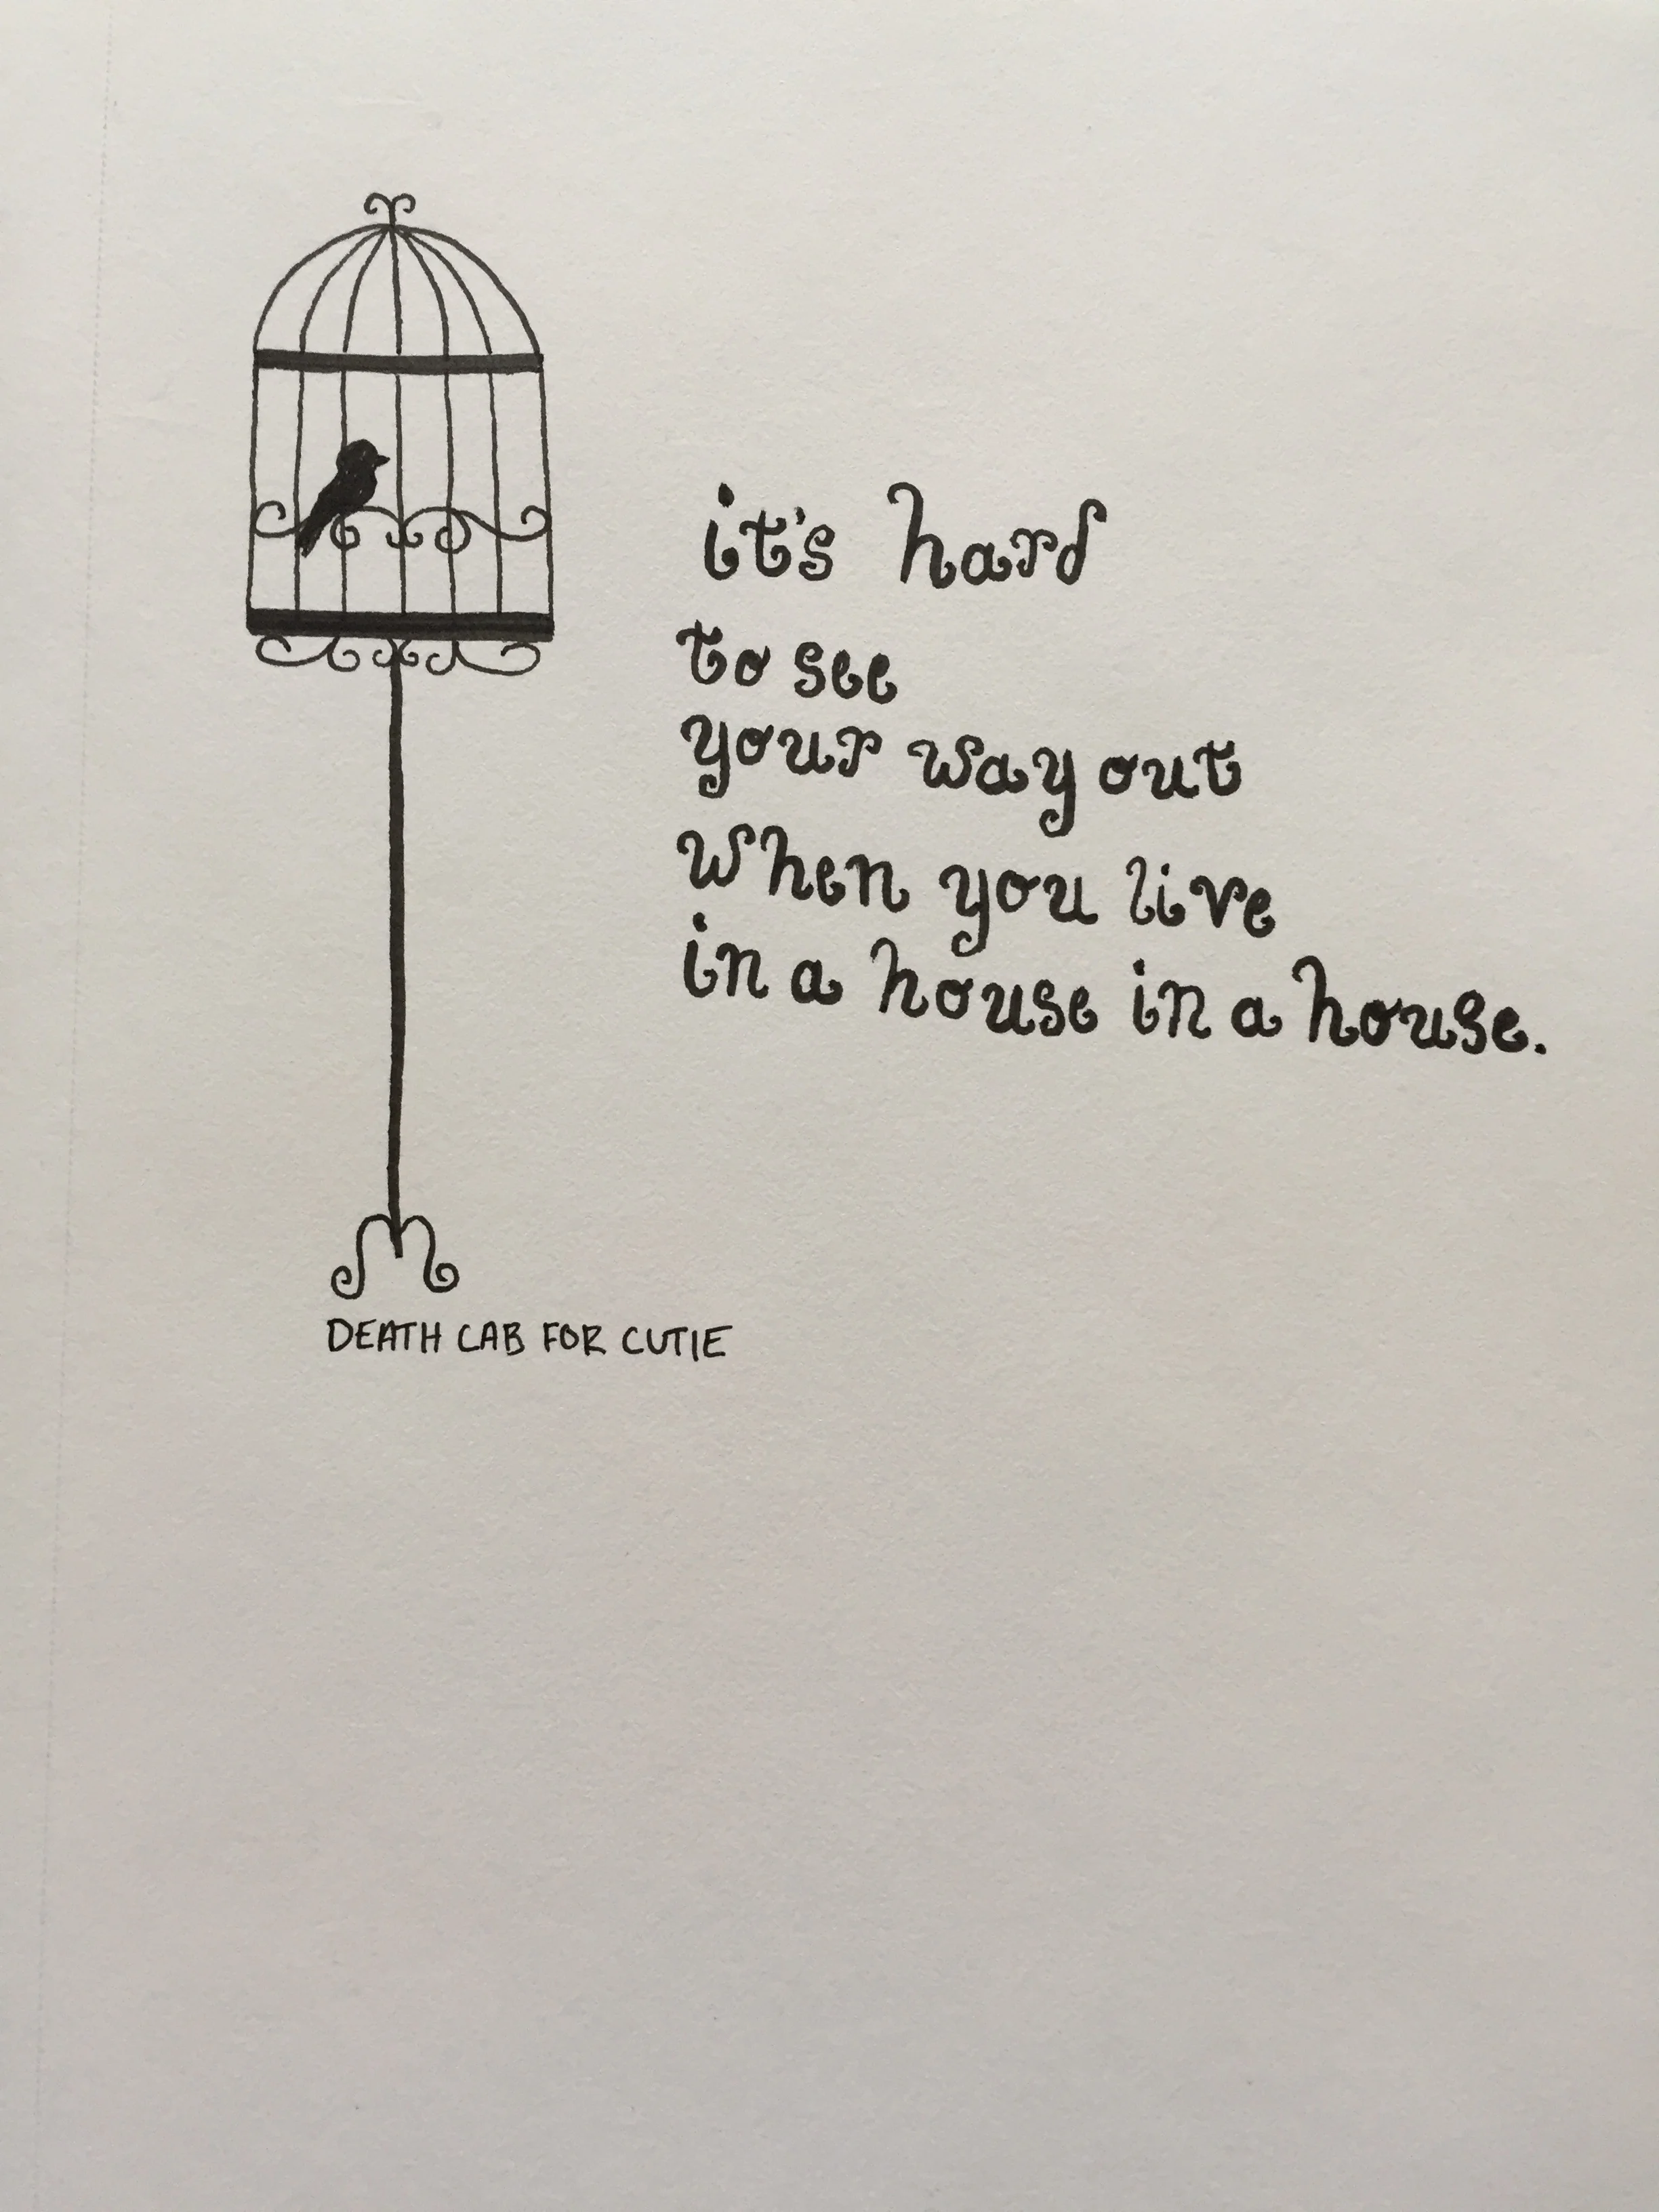 it's hard
to see
your way out
when you live
in a house in a house.
DEATH CAB FOR CUTIE